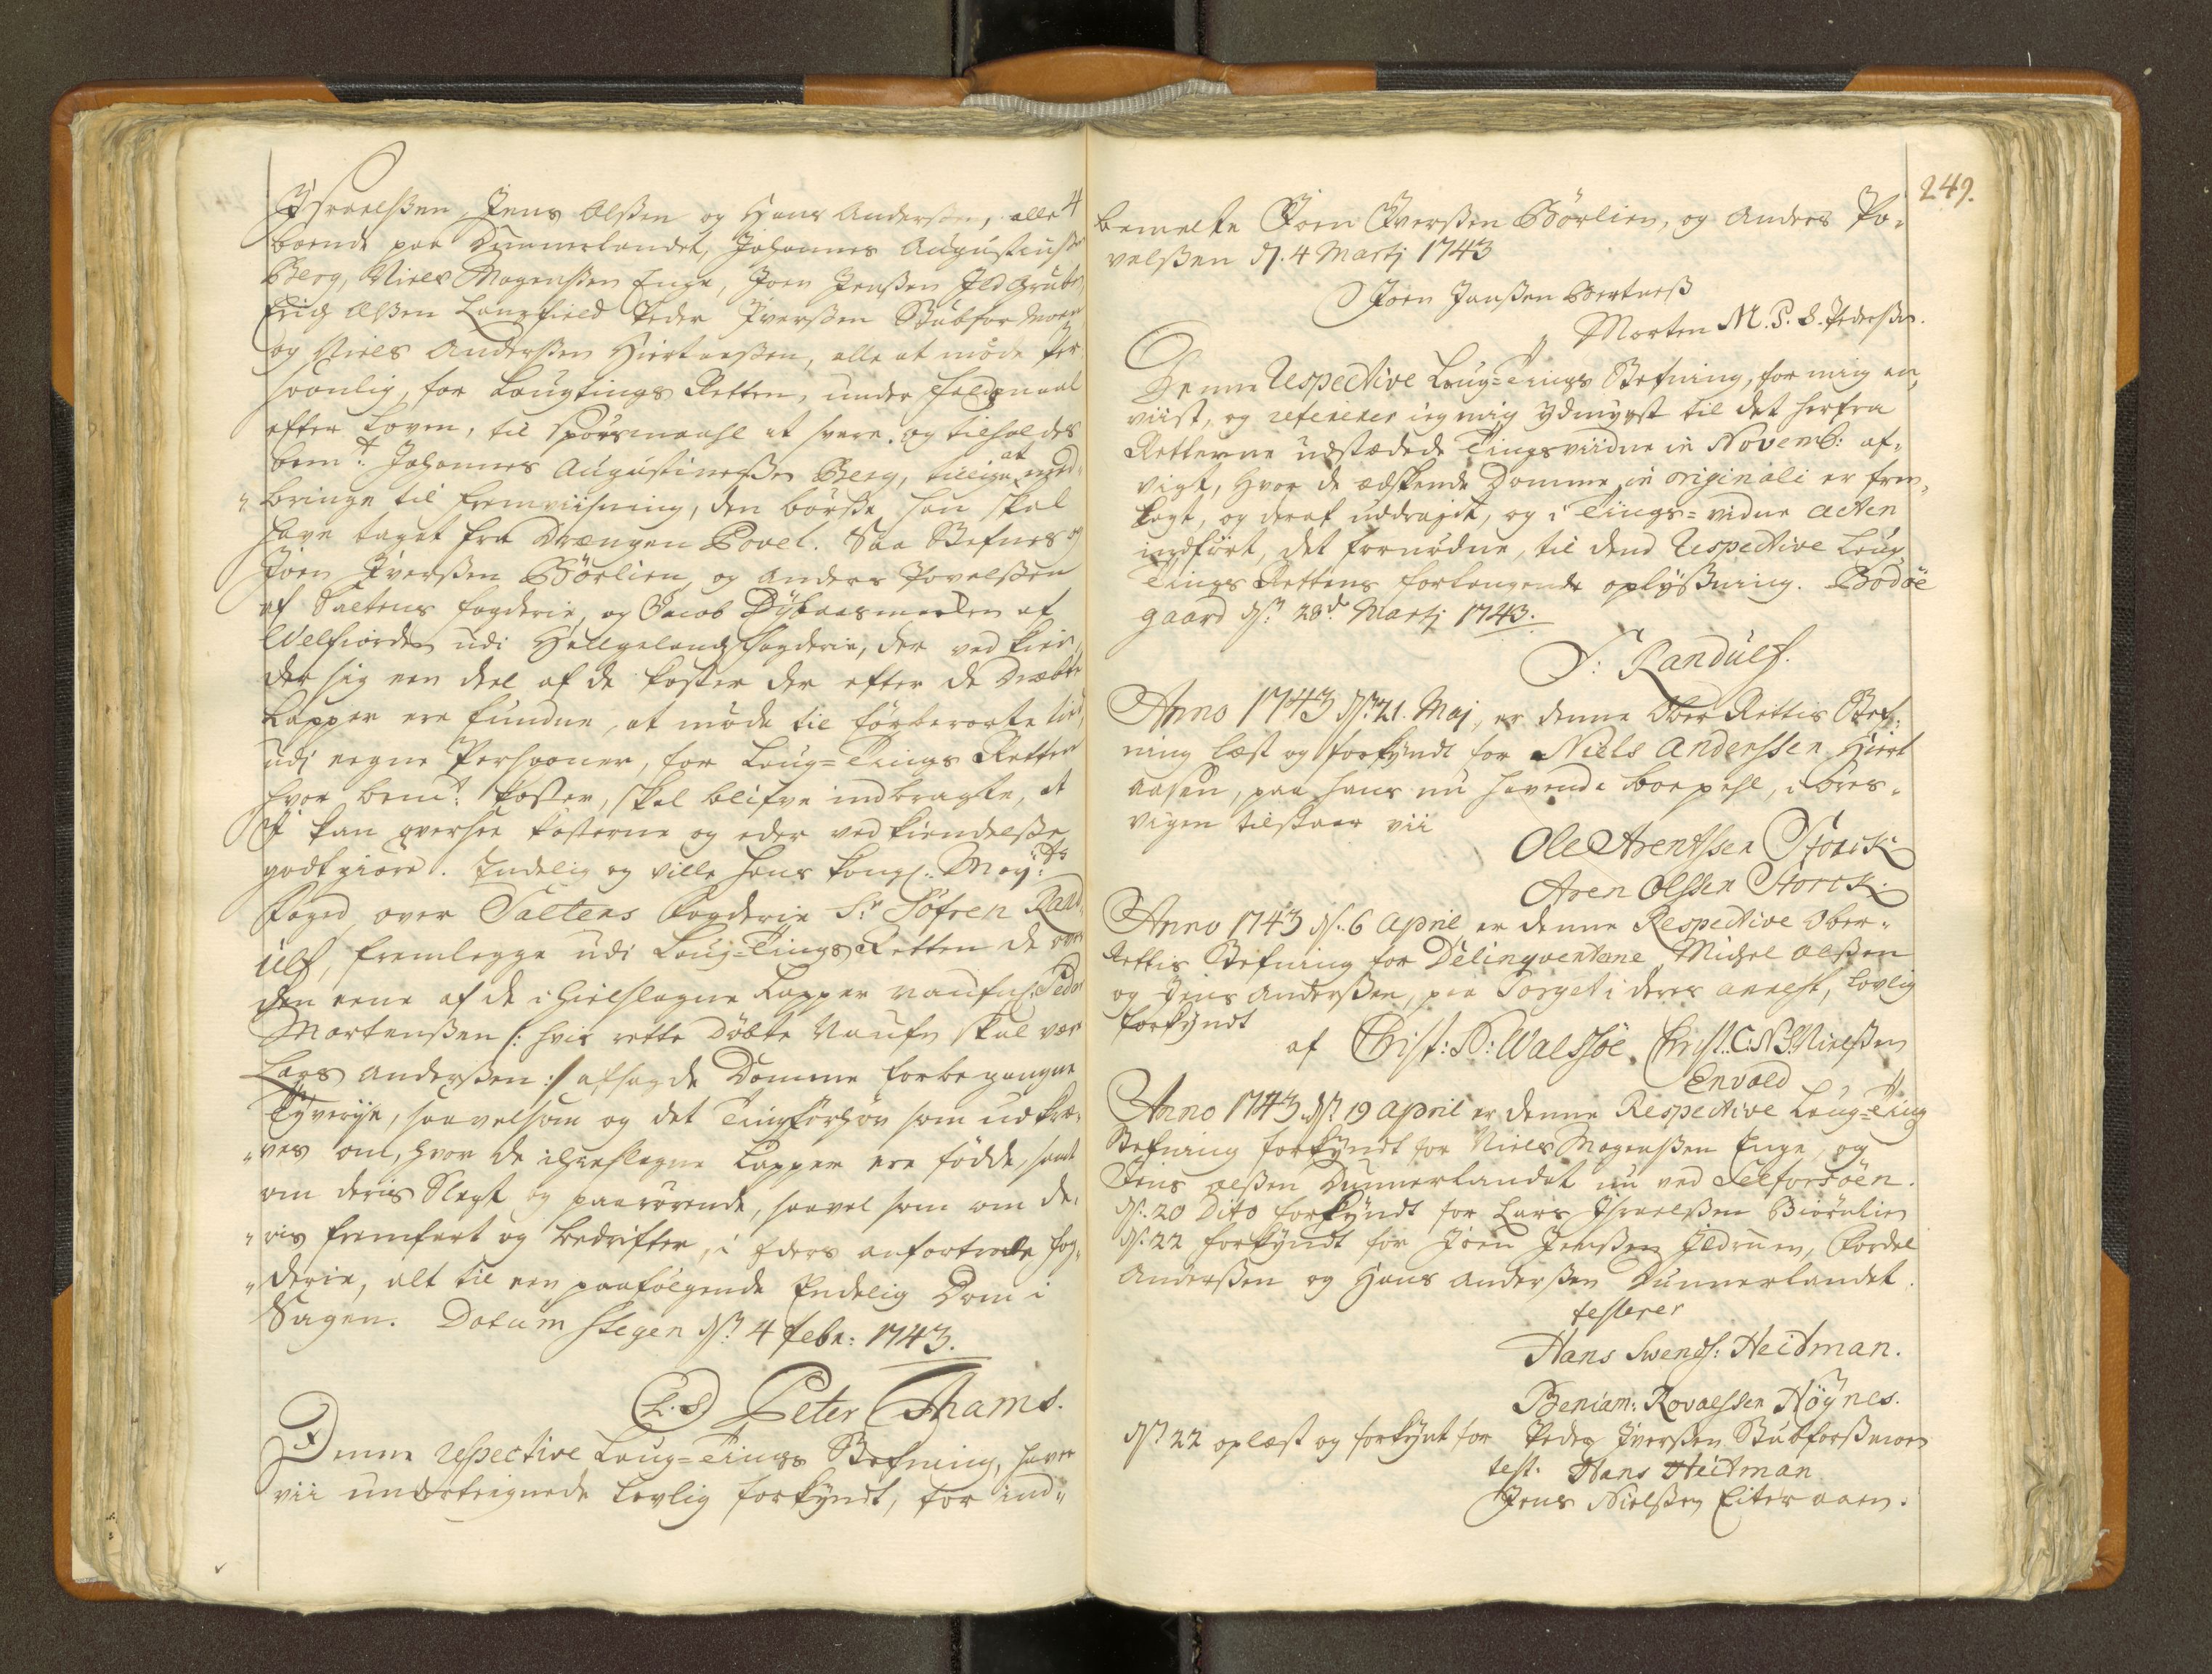 Israelsen, Jens Olßen og Hans Anderßen, alle 4
boende paa Dunnerlandet, Johannes Augustinuß:
Berg, Niels Mogenßen Enge, Joen Jenßen Ildgruben
Erich Olßen Langfield Peder Iverßen Stubfor Moen
og Niels Anderßen Hiertaaßen, alle at møde Per¬
soonlig, for Laugtings Retten, under faldsmaal
efter Loven, til spørsmaahl at svare. og tilholdes
bemt: Johannes Augustinusßen Berg, tillige at med¬
bringe til fremviisning, den børße han skal
have taget fra Drængen Povel. Saa Stefnes og
Joen Iverßen Børlien, og Anders Povelßen
af Saltens fogderie, og Jacob Dybaasmarken af
Welfiorden udi Helgelands fogderie, der ved kien¬
der sig een deel af de koster der efter de dræbte
Lapper ere fundne, at møde til førberørte tiid,
udi eegne Persooner, for Laug=Tings Retten
hvor bemt: koster, skal blifve indbragte, at
I kan oversee kosterne og eder vedkiendelße
godtgiøre. Endelig og ville hans kongl: May:ts
Foged over Saltens Fogderie Sr Søfren Rand¬
ulf, fremlegge udi Laug=Tings Retten de over
den eene af de ihielslagne Lapper naufnl: Peder
Mortenßen /: hvis rette døbte Naufn skal være
Lars Anderßen :/ afsagde Domme forbegangne
Tyverye, saavelsom og det Tingsforhør som udkræ¬
ves om, hvor de ihielslagne Lapper ere fødde, samt
om deris Slegt og paarørende, saavel som om de¬
ris fremfært og bedrifter, i Eders anfortroede fog¬
derie, alt til een paafølgende Endelig Dom i
Sagen. Datum Stegen dn: 4 febr: 1743.
(L.S) Peter Thams.
Denne respective Laug=Tings Stefning, haver
vii undertegnede lovlig forkyndt, for ind¬
249.
bemelte Joen Iverßen Børlien, og Anders Po¬
velßen d. 4 Martj 1743
Joen Janßen Bertneß
Morten M. P. S. Pederßen.
Denne Respective Laug=Tings Stefning, for mig an¬
viist, og refererer ieg mig ydmygst til det herfra
Retterne udstædede Tingsviidne in Novemb: af¬
vigt, hvor de ædskende Domme in originali er frem¬
lagt, og deraf uddragit, og i Tings=vidne acten
indført, det fornødne, til dend Respective Laug
Tings Rettens forlangende oplyßning. Bodøe
gaard dn: 28de Martj 1743.
S: Randulf.
Anno 1743 dn: 21. Maj, er denne Ober Rettis Stef¬
ning læst og forkyndt for Niels Anderssen Hiert
aasen, paa hans nu havende boepehl, i Øres¬
vigen tilstaar vii
Ole Arentssen Storck
Aren Olssen Storck.
Anno 1743 d: 6 April er denne Respective Ober¬
Rettis Stefning for Delinqventerne Michel Olßen
og Jens Anderßen, paa Torget i deres arrest, lovlig
forkyndt
af Christ: N: Walssøe, Christ. C. N. S. Nielßen
Envold
Anno 1743 dn: 19 April er denne Respective Laug=Ting
Stefning forkyndt for Niels Mogenßen Enge, og
Jens Olßen Dunnerlandet nu ved Selforsøen.
dn: 20 Dito forkyndt for Lars Israelßen Biørnlien
dn: 22 forkyndt for Joen Jenßen Ildruen, Fordel
Anderßen og Hans Anderßen Dunnerlandet.
testerer
Hans Swends: Heitman.
Beniam: Rovaelssen Høynes.
dn: 22 oplæst og forkynt for Peder Iverßen Stubforßmoen
test: Hans Heitman
Jens Nielßen Eiteraaen.